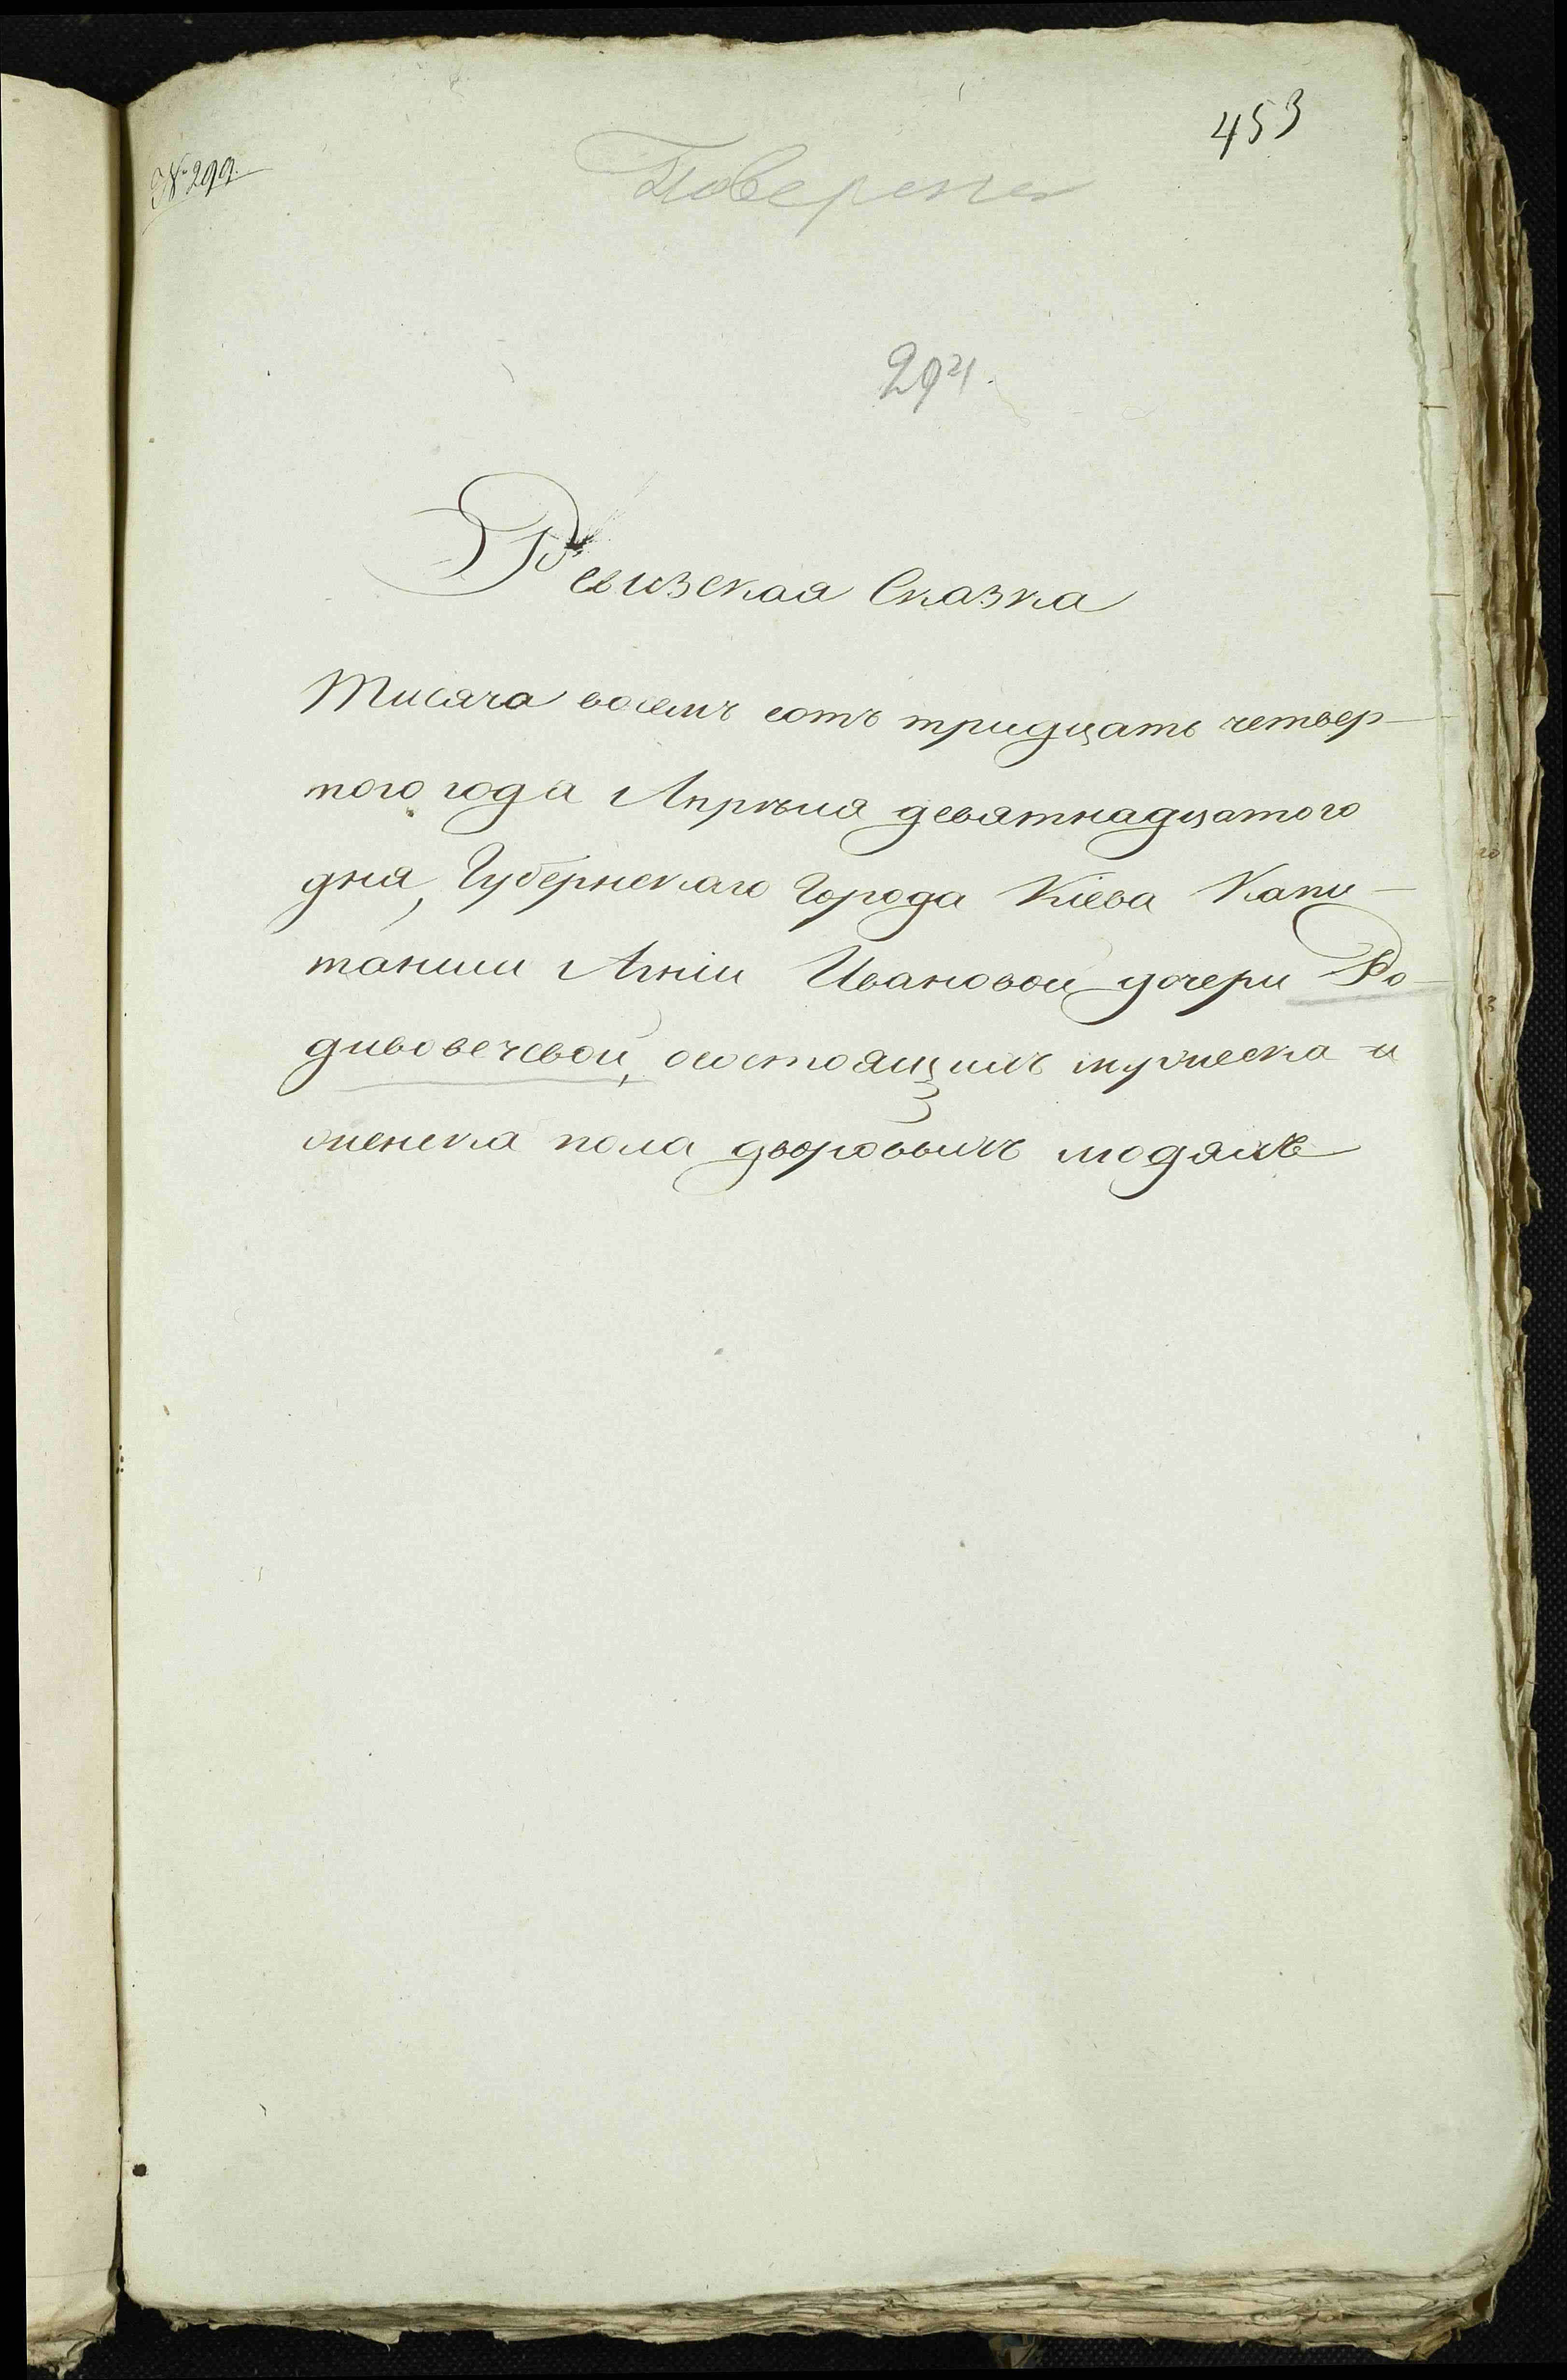 453
№ 299.
Поверена
294.
Ревизская Сказка
Тисяча восемъ сотъ тридцать четвер-
того года Апрѣля девятнадцатого
дня, Губернскаго Города Кіева Капи-
танши Анны Ивановой дочери Ро-
дивовечевой, осостоящихъ мужеска и
женска пола дворовыхъ людяхъ